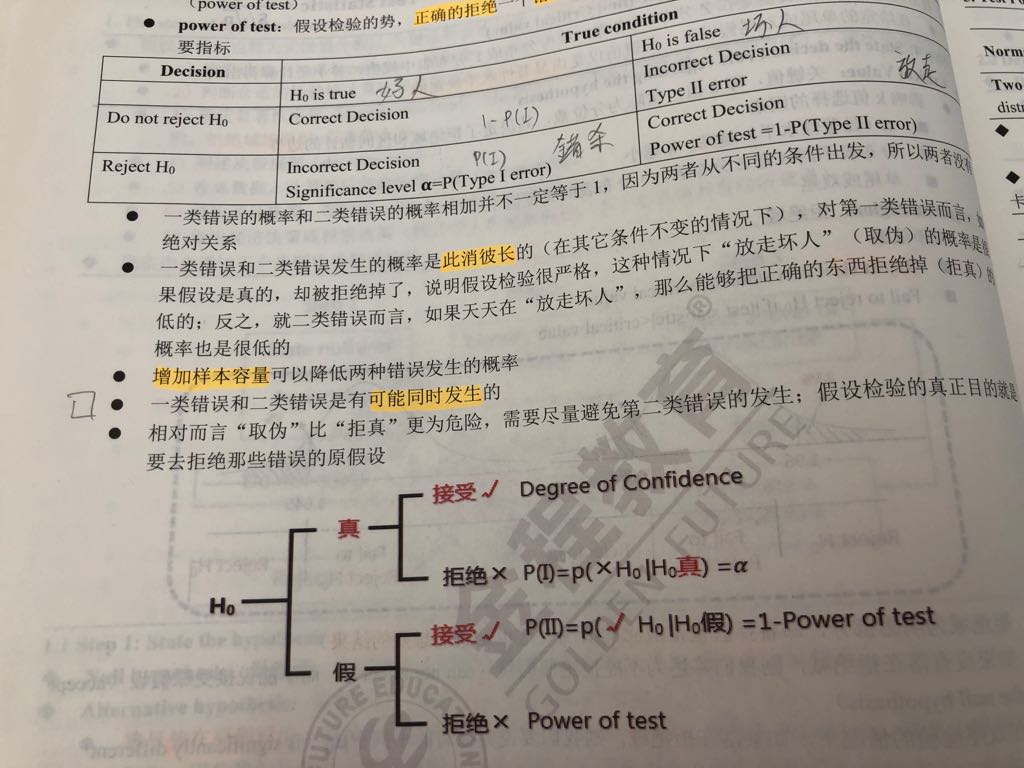 (power of test)
power of test：假设检验的势，正确的拒绝一个
要指标
Decision
True condition
H₀ is true 好人
H₀ is false 坏人
Do not reject H₀
Correct Decision 1-P(I)
Incorrect Decision
Type II error 放走
Reject H₀
Incorrect Decision P(I) 錯杀
Significance level α=P(Type I error)
Correct Decision
Power of test =1-P(Type II error)
一类错误的概率和二类错误的概率相加并不一定等于 1，因为两者从不同的条件出发，所以两者没有
绝对关系
一类错误和二类错误发生的概率是此消彼长的（在其它条件不变的情况下），对第一类错误而言，如
果假设是真的，却被拒绝掉了，说明假设检验很严格，这种情况下“放走坏人”（取伪）的概率是很
低的；反之，就二类错误而言，如果天天在“放走坏人”，那么能够把正确的东西拒绝掉（拒真）的
概率也是很低的
增加样本容量可以降低两种错误发生的概率
一类错误和二类错误是有可能同时发生的
相对而言“取伪”比“拒真”更为危险，需要尽量避免第二类错误的发生；假设检验的真正目的就是
要去拒绝那些错误的原假设
接受✓ Degree of Confidence
真
拒绝× P(I)=p(×H₀|H₀真) =α
H₀
接受✓ P(II)=p(✓ H₀|H₀假) =1-Power of test
假
拒绝× Power of test
金程教育®
GOLDEN FUTURE
FUTURE EDUCATION
Norm
Two
distr
卡